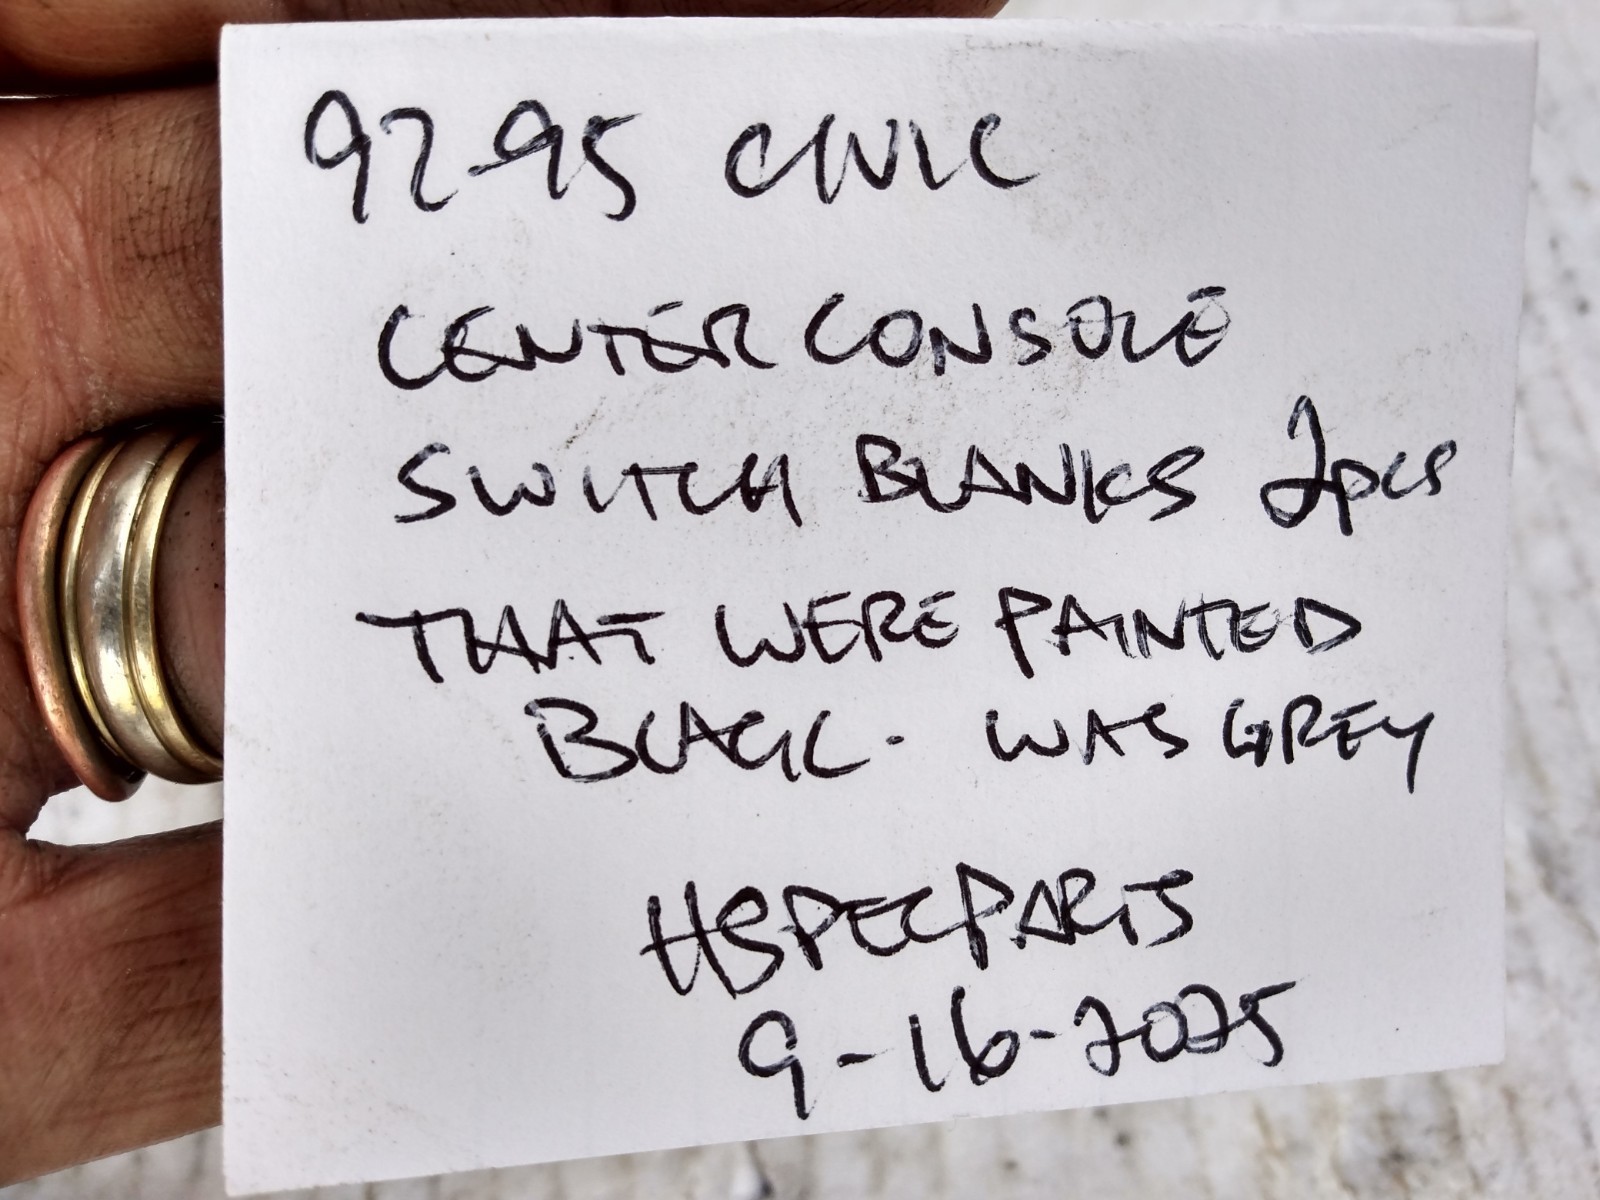 92-95 CIVIC
CENTER CONSOLE
SWITCH BLANKS 2pcs
THAT WERE PAINTED
BLACK. WAS GREY
HSPECPARTS
9-16-2025